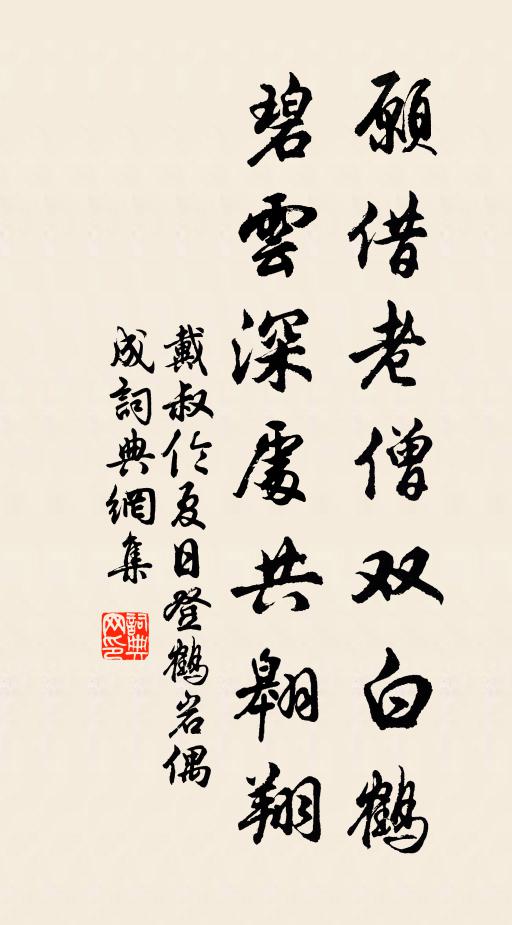 願借老僧双白鶴
碧雲深處共翺翔
戴叔伦夏日登鶴岩偶
成詞典網集
詞典网印